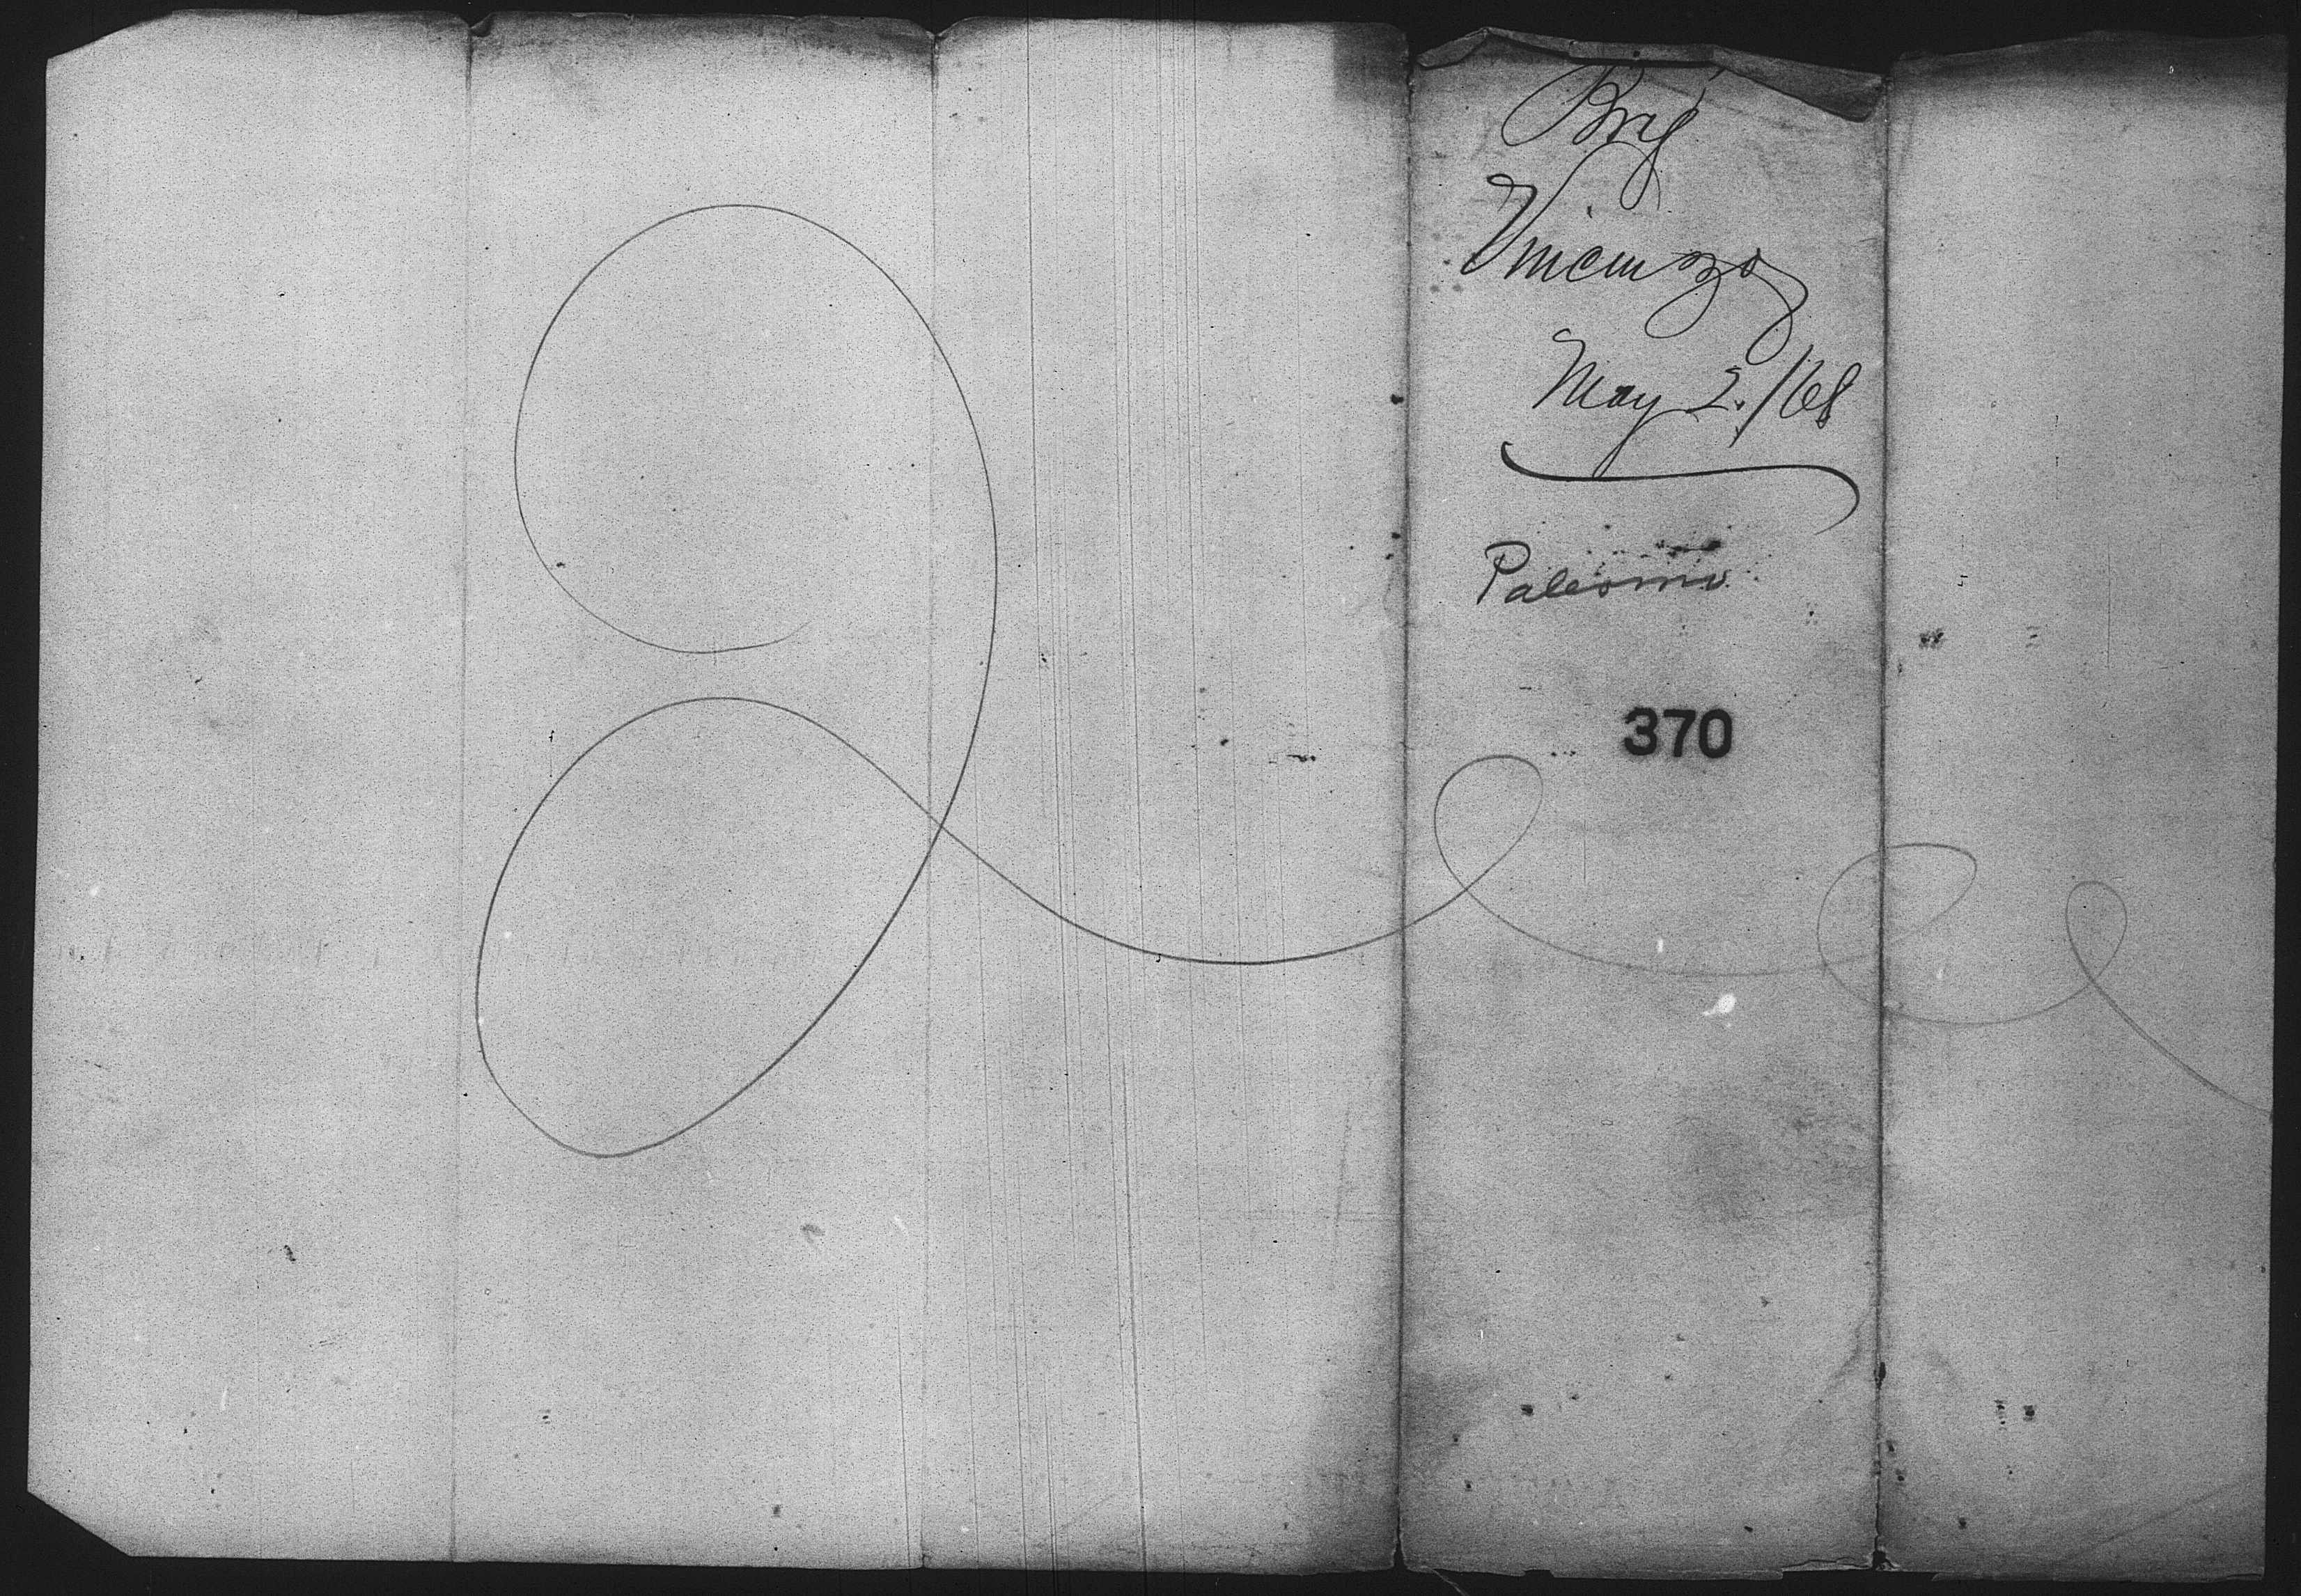 Brig
Vincenzo
May 2./68
Palermo
370